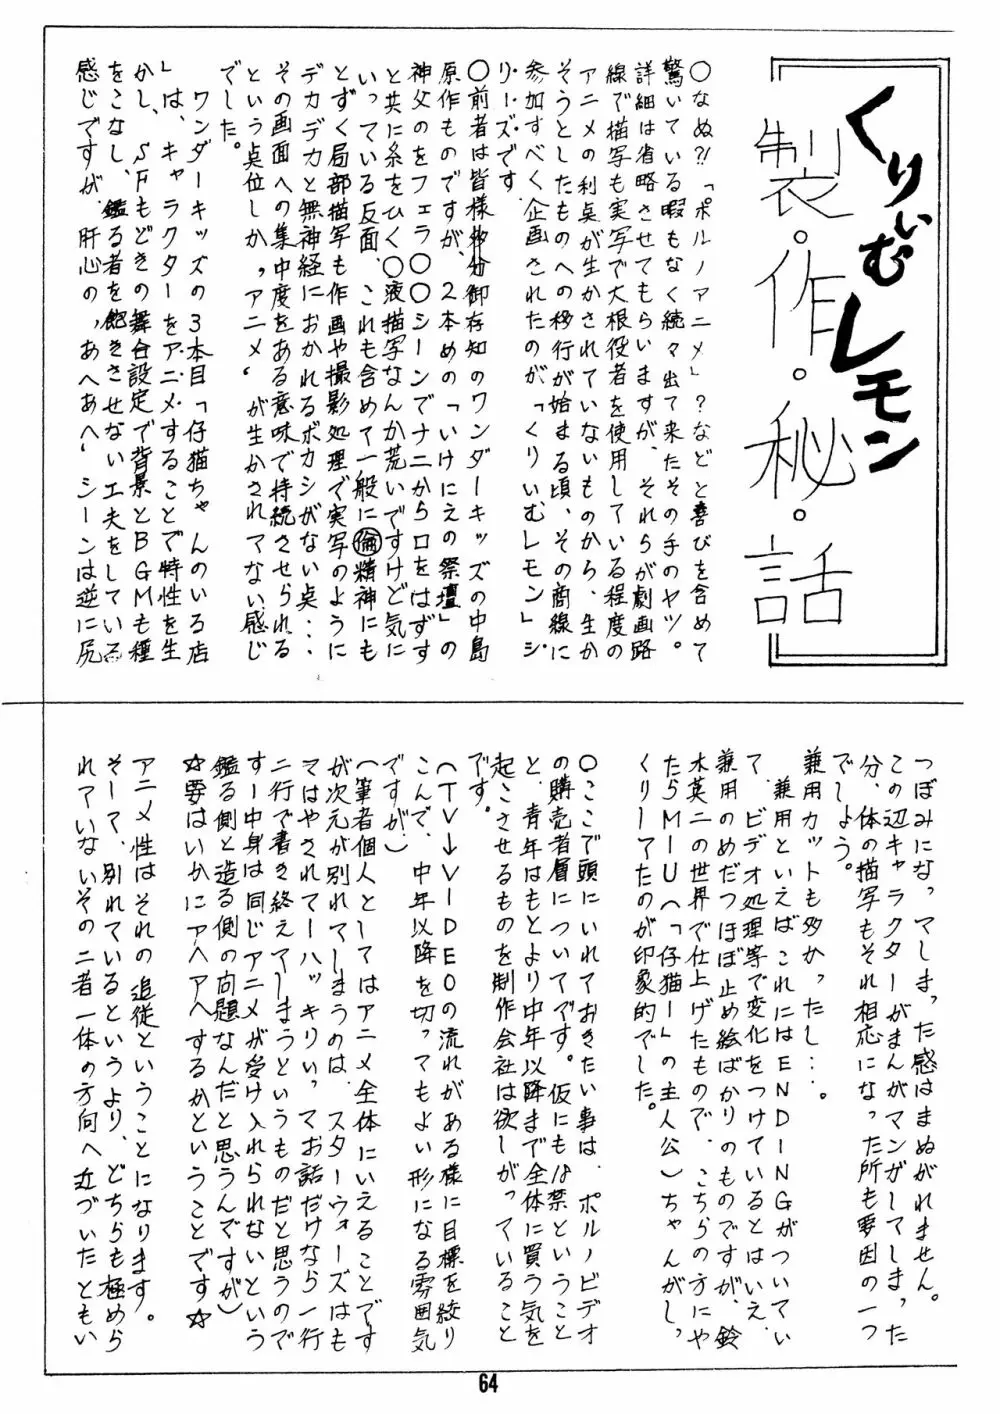 くりぃむレモン
製・作・秘・話
〇なぬ?!「ポルノアニメ」?などと喜びを含めて
驚いている暇もなく続々出て来たその手のヤツ。
詳細は省略させてもらいますが、それらが劇画路
線で描写も実写で大根役者を使用している程度の
アニメの利点が生かされていないものから、生か
そうとしたものへの移行が始まる頃、その商線に
参加すべく企画されたのが「くりいむレモン」シ
リーズです。
〇前者は皆様多分御存知のワンダーキッズの中島
原作ものですが、2本めの「いけにえの祭壇」の
神父のをフェラ〇〇シーンでナニから口をはずす
と共に糸をひく〇液描写なんか荒いですけど気に
いっている反面、これも含めて一般に倫精神にも
とずく局部描写も作画や撮影処理で実写のように
デカデカと無神経におかれるボカシがない点…
その画面への集中度をある意味で持続させられる
という点位しか〝アニメ〟が生かされてない感じ
でした。
ワンダーキッズの3本目「仔猫ちゃんのいる店
」は、キャラクターをアニメすることで特性を生
かし、SFもどきの舞台設定で背景とBGMも種
をこなし、鑑る者を飽きさせない工夫をしている
感じですが、肝心の〝あへあへ〟シーンは逆に尻
つぼみになってしまった感はまぬがれません。
この辺キャラクターがまんがマンがしてしまった
分、体の描写もそれ相応になった所も要因の一つ
でしょう。
兼用カットも多かったし…。
兼用といえばこれにはENDINGがついてい
て、ビデオ処理等で変化をつけているとはいえ、
兼用のめだつほぼ止め絵ばかりのものですが、鈴
木英二の世界で仕上げたもので、こちらの方にや
たらMIU(「仔猫ー」の主人公)ちゃんがし
くりしてたのが印象的でした。
〇ここで頭にいれておきたい事は、ポルノビデオ
の購売者層についてです。仮にも18禁ということ
と、青年はもとより中年以降まで全体に買う気を
起こさせるものを制作会社は欲しがっていること
です。
(TV→VIDEOの流れがある様に目標を絞り
こんで、中年以降を切ってもよい形になる雰囲気
ですが)
(筆者個人としてはアニメ全体にいえることです
が次元が別れてしまうのは、スターウォーズはも
てはやされてーハッキリいってお話だけなら一行
二行で書き終えてしまうというものだと思うので
すー中身は同じアニメが受け入れられないという
鑑る側と造る側の問題なんだと思うんですが)
☆要はいかにアヘアヘするかということです☆
アニメ性はそれの追従ということになります。
そして、別れているというより、どちらも極めら
れていないその二者一体の方向へ近づいたともい
64